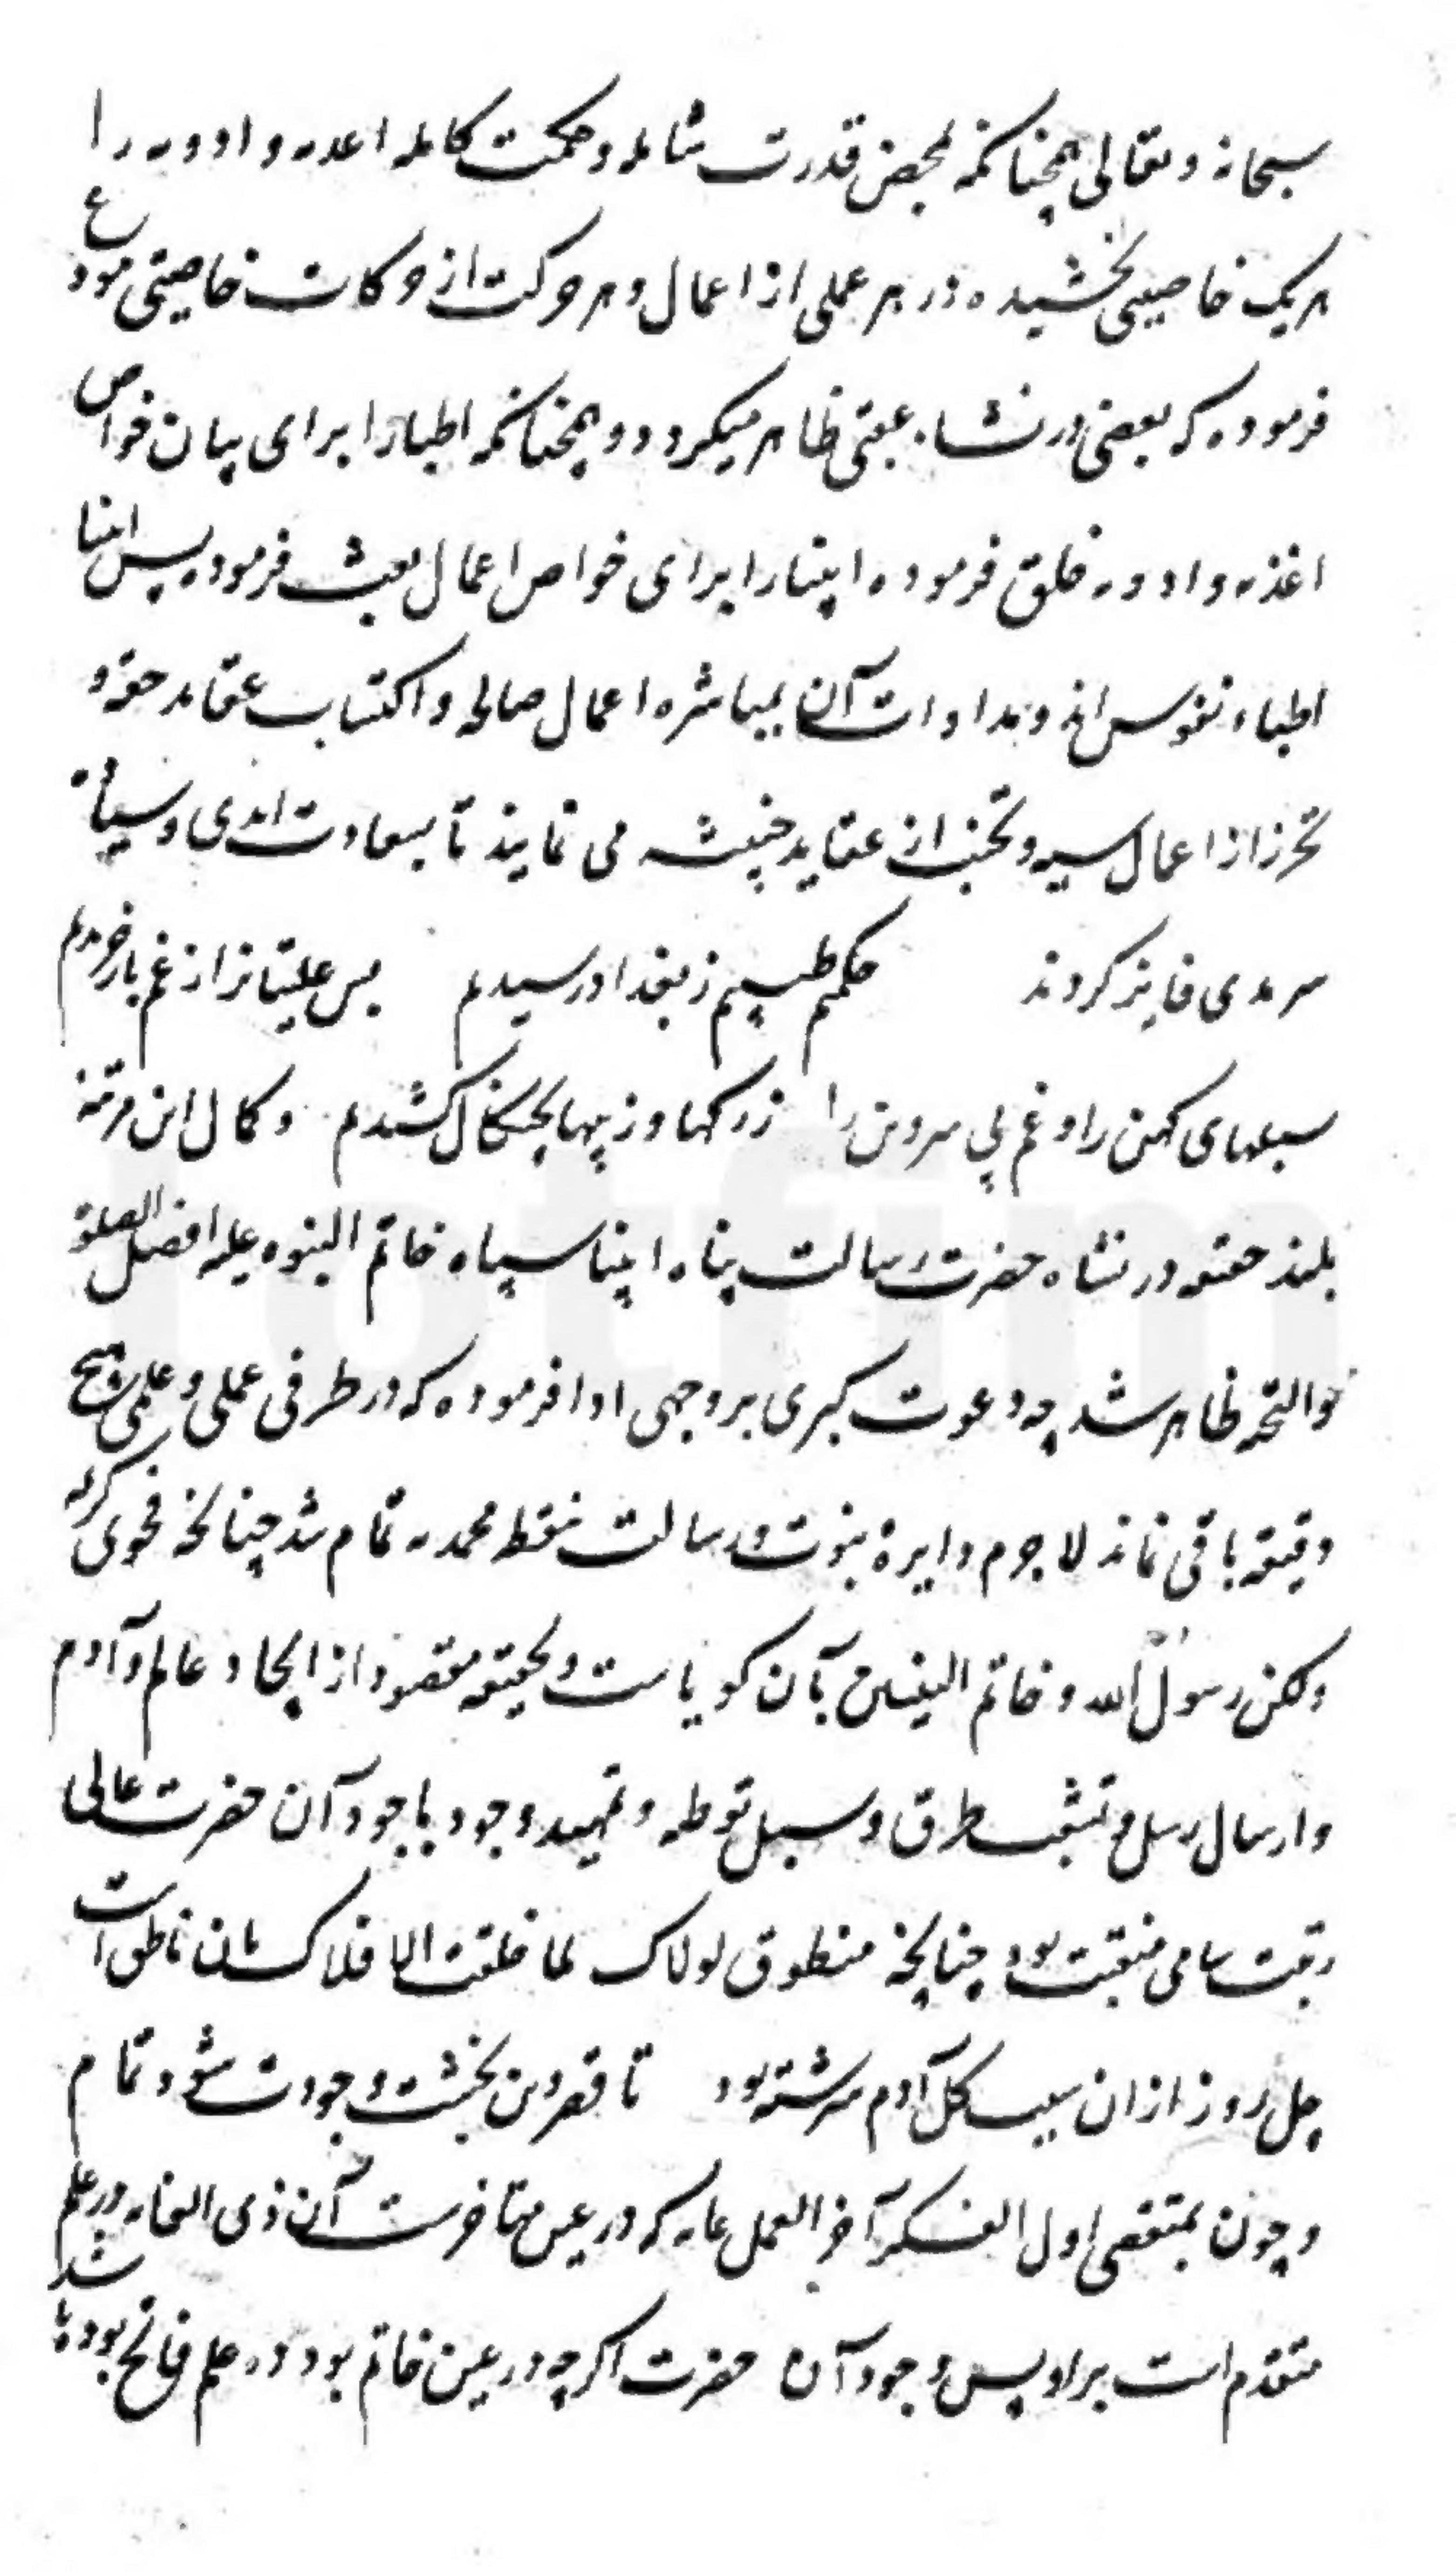 سبحانه و تعالی همچنانکه بمحض قدرت شامله و حکمت کامله اغذیه و ادویه را
هر یک خاصیتی بخشیده در هر عملی از اعمال و هر حرکت از حرکات خاصیتی مودع
فرموده که بعضی در نشاه عقبی ظاهر میکردد و همچنانکه اطبا را برای بیان خواص
اغذیه و ادویه خلق فرموده انبیا را برای خواص اعمال بعث فرموده پس انبیا
اطباء نفوس اند و مداوات آن بمباشره اعمال صالحه و اکتساب عقاید حقه و
تحرز از اعمال سیئه و تجنب از عقاید خبیثه می نمایند تا بسعادت ابدی و سیادت
سرمدی فایز کردند حکیمم طبیبم ز بغداد رسیدم بس علتیان را ز غم باز خریدم
سبلهای کهن را و غم بی سر و بن را ز رکها و ز پیها بچنکال کشیدم و کمال این مرتبه
بلند حقیقه در نشاه حضرت رسالت پناه انبیا سپاه خاتم النبوه علیه افضل الصلوة
و التحیه ظاهر شد چه دعوت کبری بر وجهی ادا فرموده که در طرفی عملی و علمی هیچ
دقیقه باقی نماند لا جرم دایرهٔ نبوت و رسالت بنقطه محمدیه تمام شد چنانچه فحوی کریمه
ولکن رسول الله و خاتم النبیین بآن کویاست و بحقیقه مقصود از ایجاد عالم و آدم
و ارسال رسل و تشعب طرق و سبل توطئه و تمهید وجود باجود آن حضرت عالی
رتبت سامی منقبت بود چنانچه منطوق لولاک لما خلقت الافلاک بدان ناطق است
چل روز از آن سبب کل آدم سرشته بود تا قصر دین بخشت وجودت شود تمام
و چون بمقتضی اول الفکر آخر العمل غایه که در عین متاخرست از ذی الغایه در علم
متقدم است بر او پس وجود آن حضرت اکرچه در عین خاتم بود در علم فاتح بوده باشد